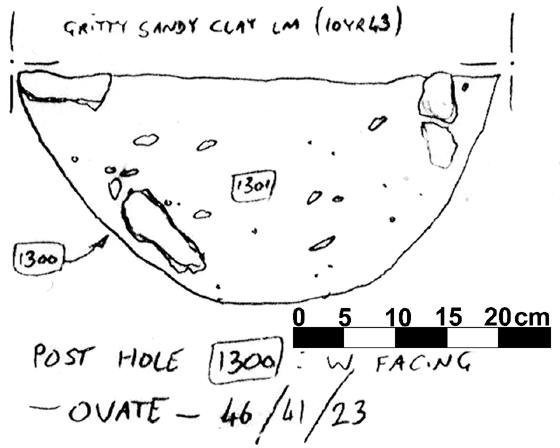 GRITTY SANDY CLAY LM (10YR43)
1301
1300
0 5 10 15 20cm
POST HOLE 1300 : W FACING
- OVATE - 46/41/23